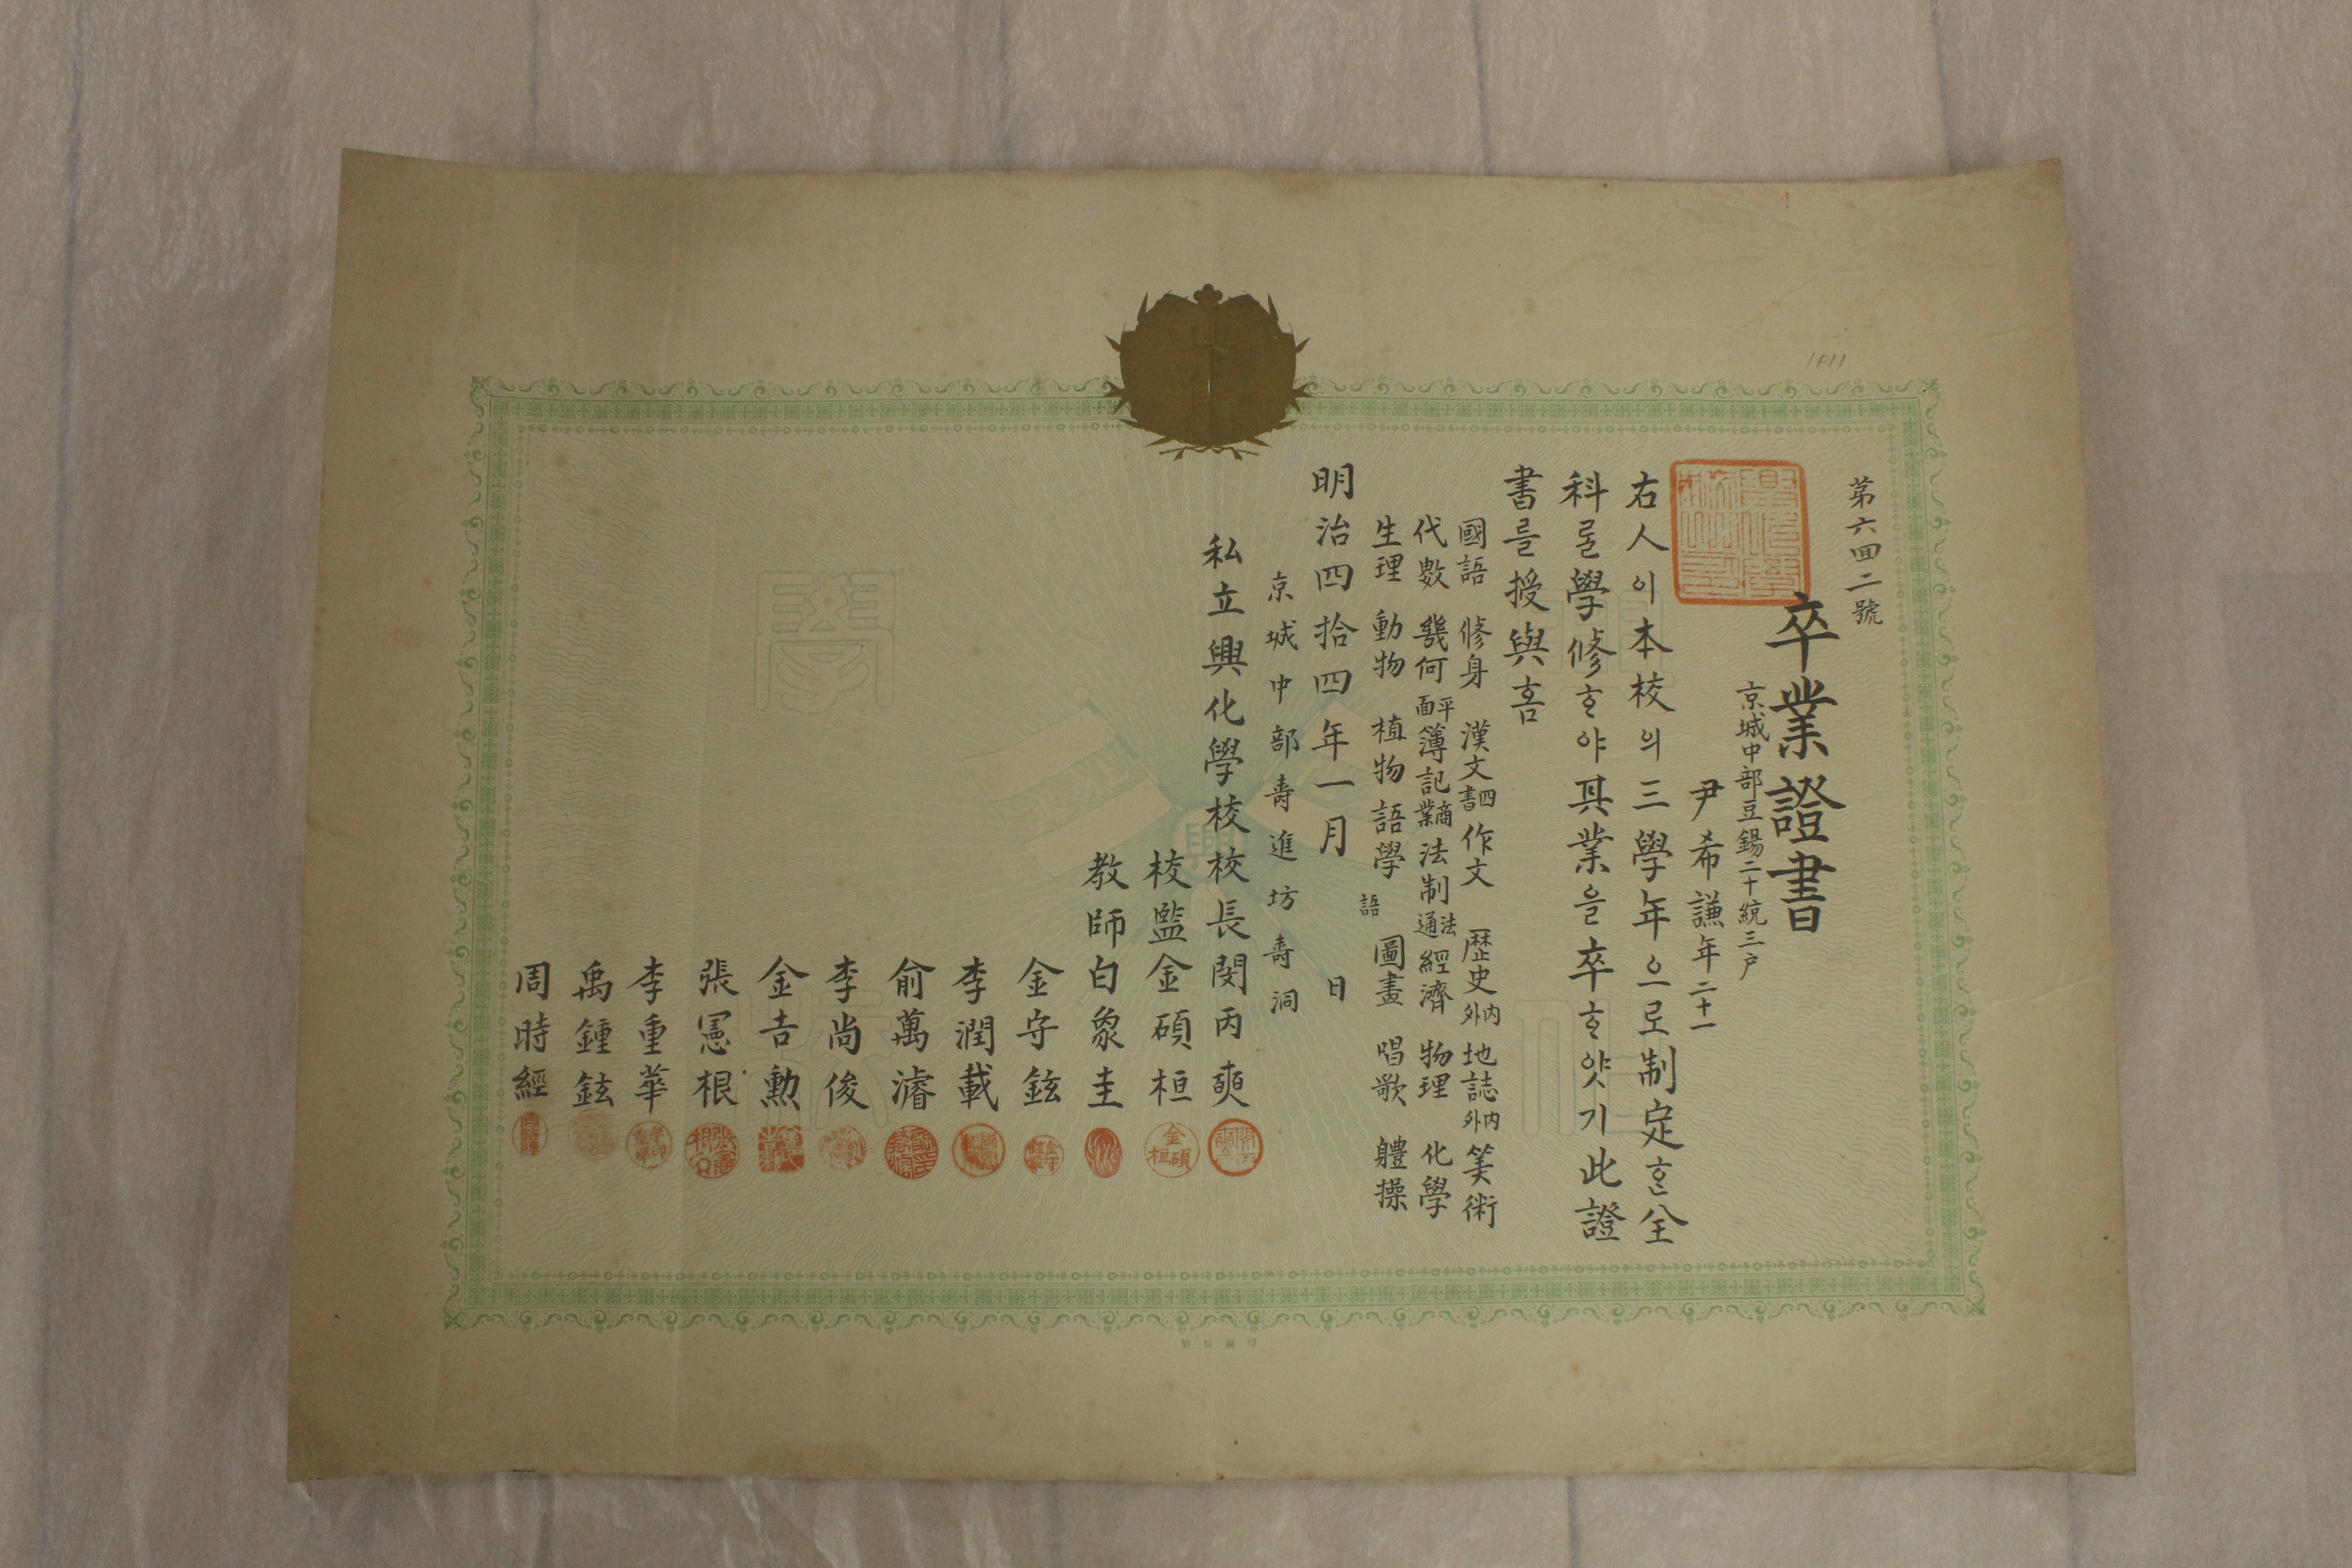 第六四二號
卒業證書
京城中部豆錫二十統三戶
尹希謙年二十一
右人이本校의三學年으로制定ᄒᆞᆫ全
科ᄅᆞᆯ學修ᄒᆞ야其業을卒ᄒᆞ얏기此證
書를授與홈
國語 修身 漢文四書 作文 歷史內外 地誌內外 筭術
代數 幾何平面 簿記商業 法制法通 經濟 物理 化學
生理 動物 植物 語學語 圖畫 唱歌 體操
明治四拾四年一月 日
京城中部壽進坊壽洞
私立興化學校校長閔丙奭
校監金碩桓
教師白象圭
金守鉉
李潤載
俞萬濬
李尚俊
金吉勳
張憲根
李重華
禹鍾鉉
周時經
金碩桓
1911
學
興
化